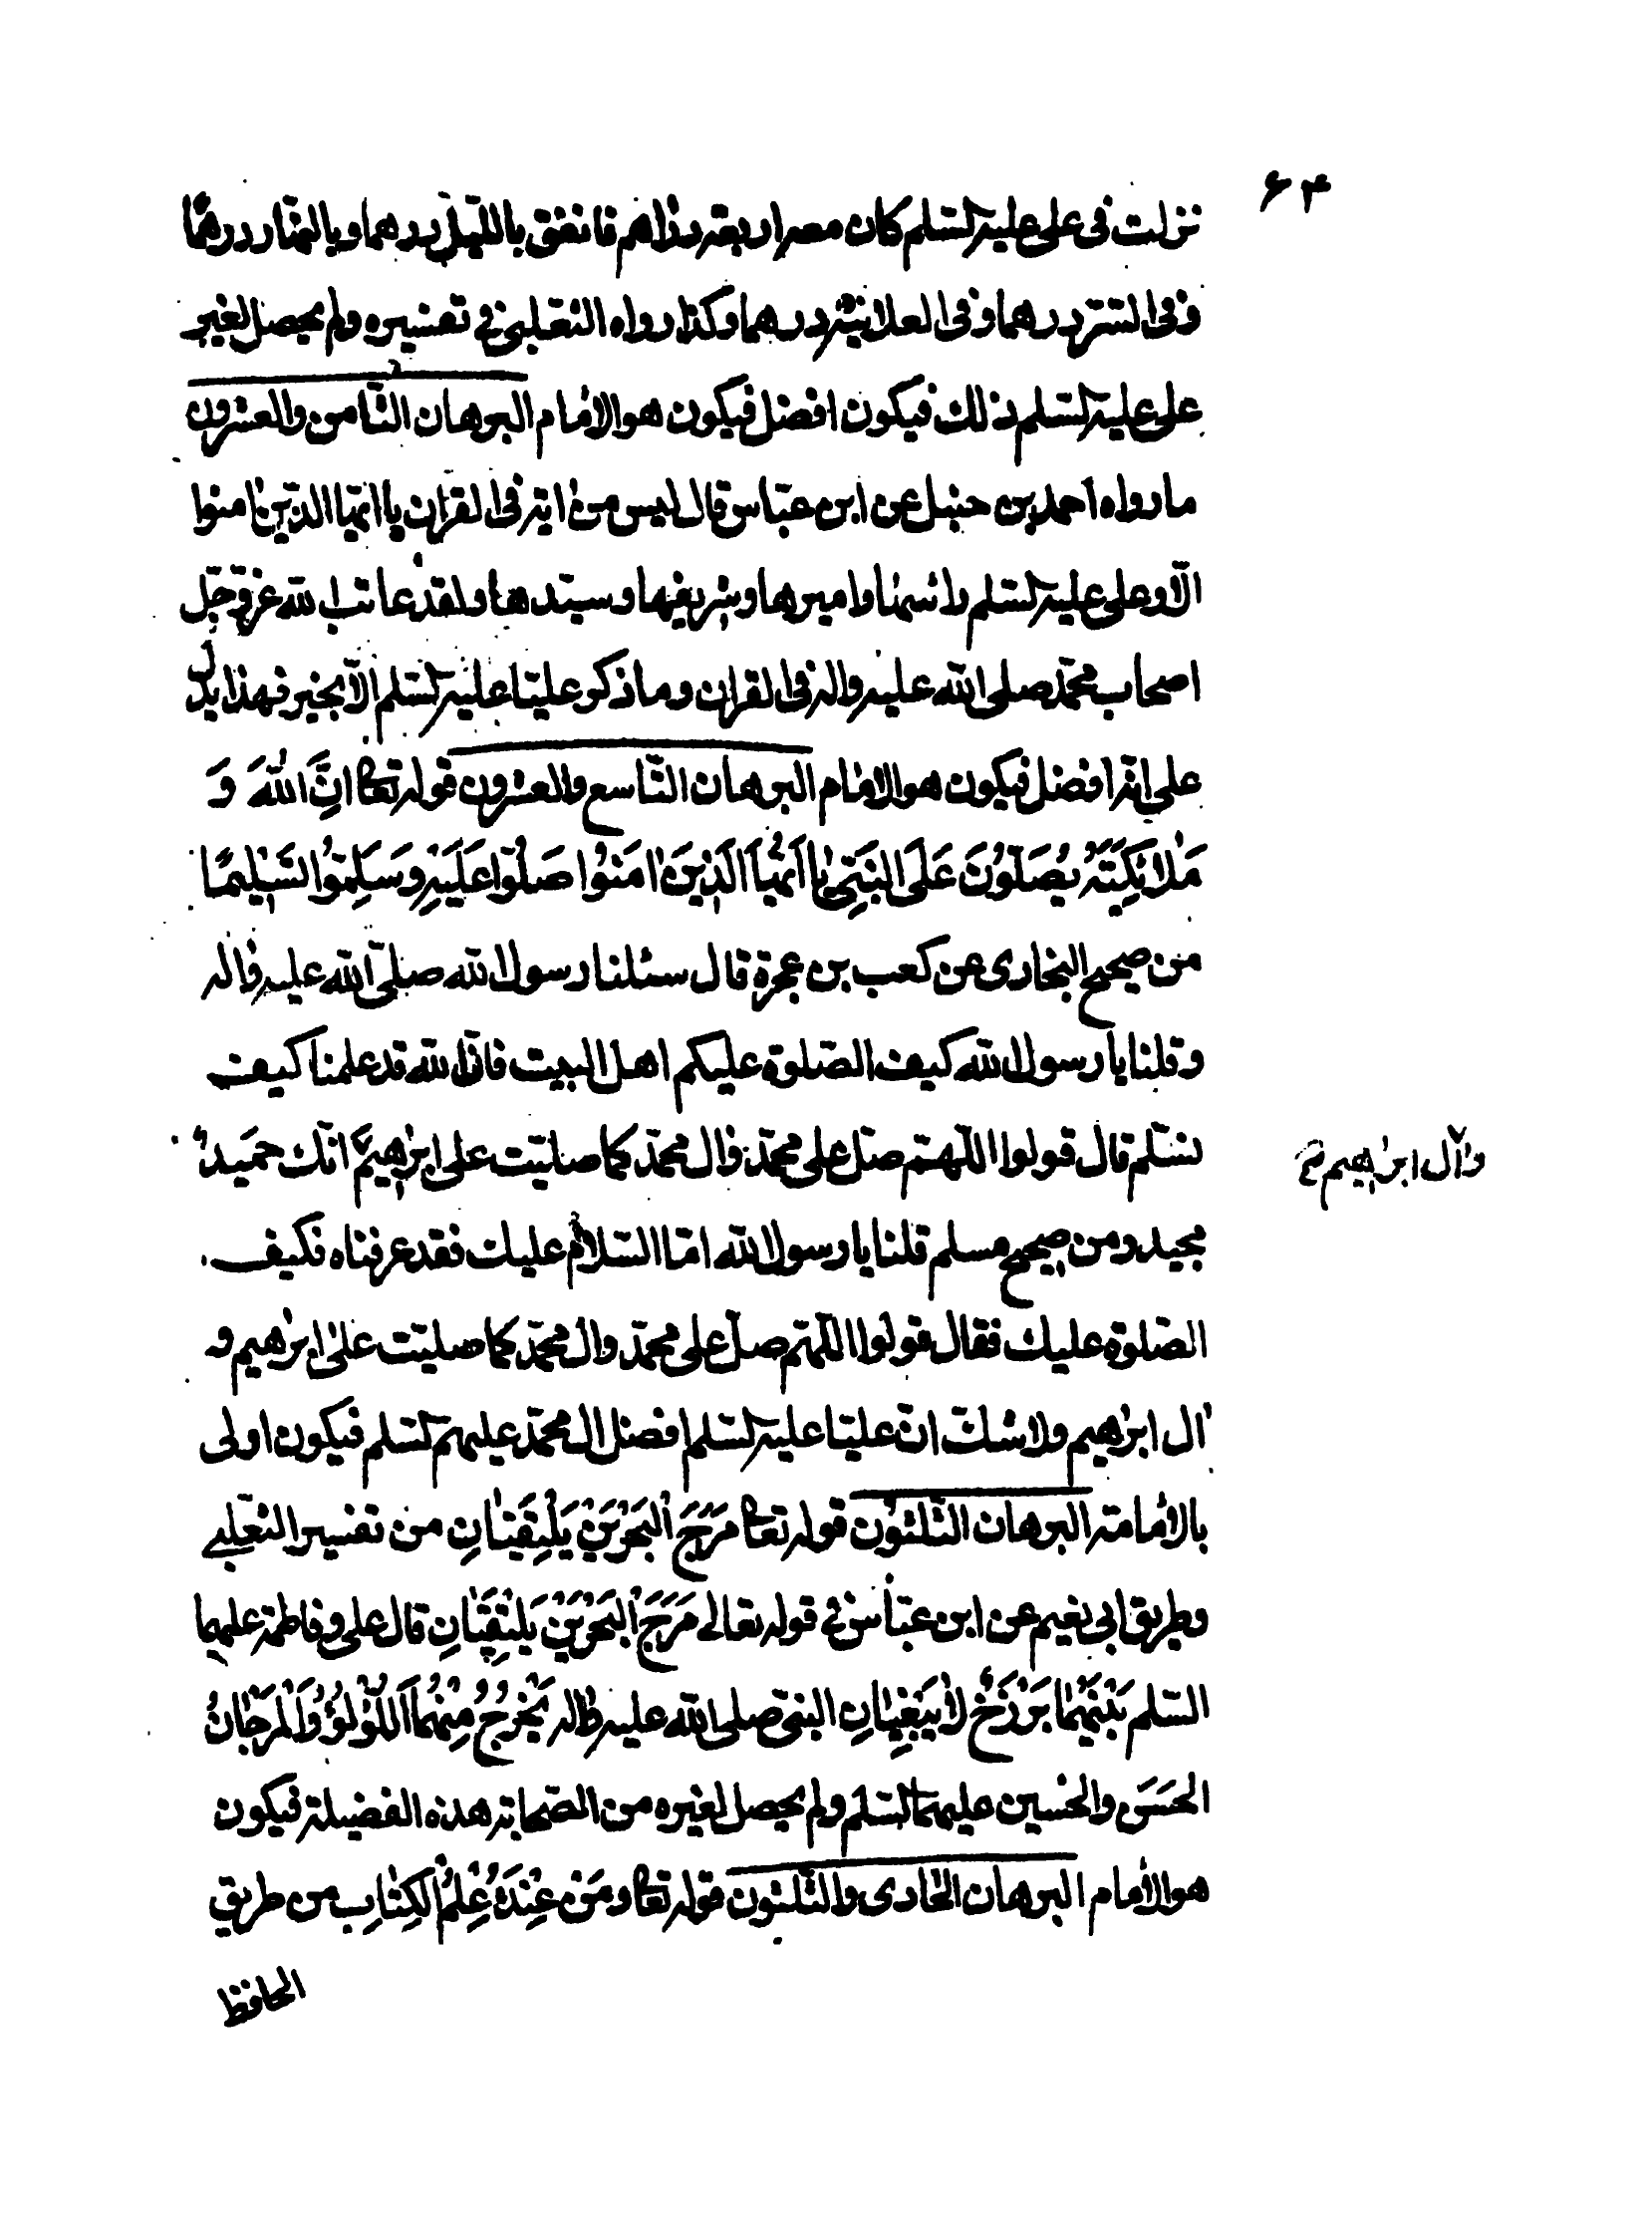 ۶۴
نزلت فی علی علیه السّلم کان معه اربعة دراهم فانفق باللّیل درهما وبالنّهار درهمًا
وفی السّرّ درهما وفی العلانیّة درهما وکذا رواه الثعلبی فی تفسیره ولم یحصل لغیر
علی علیه السّلم ذلک فیکون افضل فیکون هو الامام البرهان الثّامن والعشرون
ما رواه احمد بن حنبل عن ابن عبّاس قال لیس من ایة فی القران یا ایّها الذّین امنوا
الّا وعلی علیه السّلم راسها وامیرها وشریفها وسیّدها ولقد عاتب الله عزّ وجلّ
اصحاب محمّد صلی الله علیه واله فی القران وما ذکر علیّا علیه السّلم الّا بخیر فهذا یدلّ
علی انّه افضل فیکون هو الامام البرهان التّاسع والعشرون قوله تعا اِنَّ اللهَ وَ
مَلائِکَتَهُ یُصَلّوُنَ عَلَی النَبّیِ یا اَیُّهاَ الَذّینَ امَنوُا صَلوُّا عَلَیْهِ وَسَلِّموُا تَسْلیمًا
من صحیح البخاری عن کعب بن عجرة قال سئلنا رسول الله صلّی الله علیه واله
وقلنا یا رسول الله کیف الصّلوة علیکم اهل البیت فانّ الله قد علمنا کیف
نسّلم قال قولوا اللّهّم صلّ علی محمّد وال محمّد کما صلیّت علی ابرهیم انّک حمید
وآل ابرهیم
مجید ومن صحیح مسلم قلنا یا رسول الله امّا السّلام علیک فقد عرفناه فکیف
الصّلوة علیک فقال قولوا اللّهّم صلّ علی محمّد وال محمّد کما صلیّت علی ابرهیم و
ال ابرهیم ولا شکّ انّ علیّا علیه السّلم افضل ال محمّد علیهم السّلم فیکون اولی
بالامامة البرهان الثّلثون قوله تعا مَرَجَ الْبَحْرَیْنِ یَلْتَقِیانِ من تفسیر الثّعلبی
وطریق ابی نعیم عن ابن عبّاس فی قوله تعالی مَرَجَ الْبَحْرَیْنِ یَلْتَقِیانِ قال علی وفاطمة علیهما
السّلم بَیْنَهُما بَرْزَخٌ لا یَبْغِیانِ النبیّ صلی الله علیه واله یَخْرُجُ مِنْهُمَا اللُّؤْلُؤُ وَالْمَرْجانُ
الحَسَن والحسین علیهما السّلم ولم یحصل لغیره من الصّحابة هذه الفضیلة فیکون
هو الامام البرهان الحادی والثّلثون قوله تعا ومَنْ عِنْدَهُ عِلْمُ الْکِتابِ من طریق
الحافظ